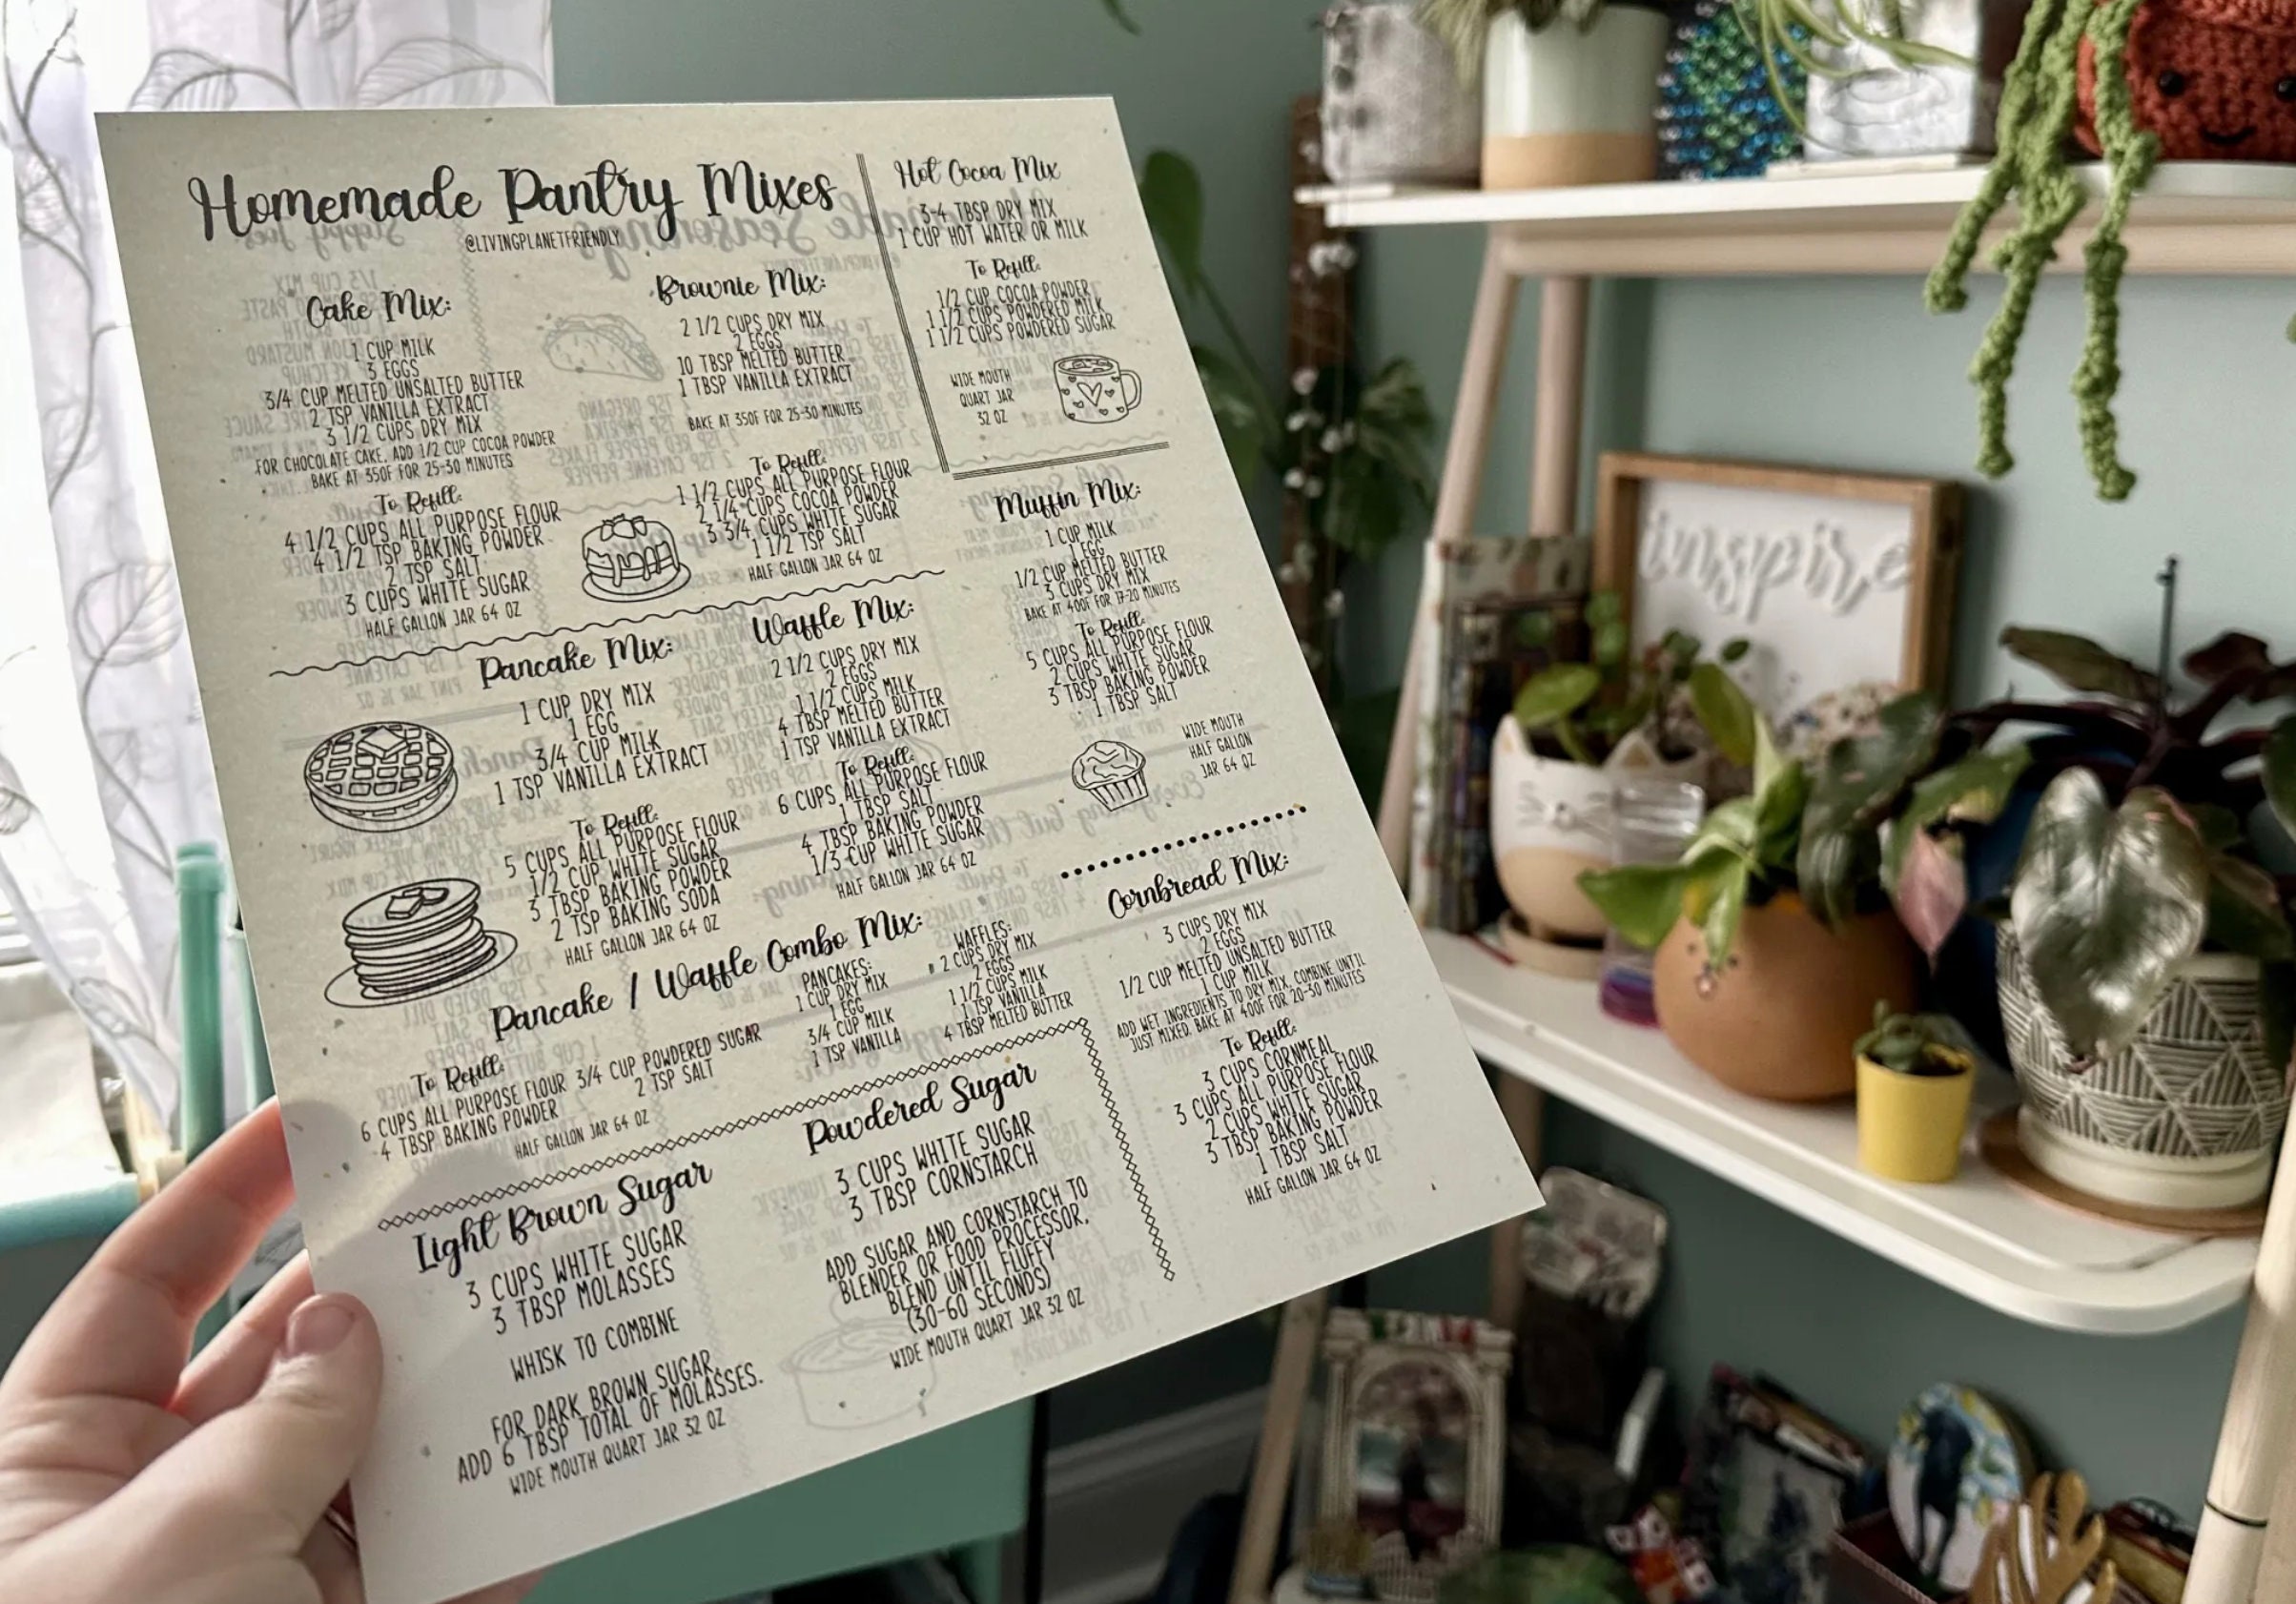 Homemade Pantry Mixes
@LIVINGPLANETFRIENDLY
Cake Mix:
1 CUP MILK
3 EGGS
3/4 CUP MELTED UNSALTED BUTTER
2 TSP VANILLA EXTRACT
3 1/2 CUPS DRY MIX
FOR CHOCOLATE CAKE, ADD 1/2 CUP COCOA POWDER
BAKE AT 350F FOR 25-30 MINUTES
To Refill:
4 1/2 CUPS ALL PURPOSE FLOUR
4 1/2 TSP BAKING POWDER
2 TSP SALT
3 CUPS WHITE SUGAR
HALF GALLON JAR 64 OZ
Brownie Mix:
2 1/2 CUPS DRY MIX
2 EGGS
10 TBSP MELTED BUTTER
1 TBSP VANILLA EXTRACT
BAKE AT 350F FOR 25-30 MINUTES
To Refill:
1 1/2 CUPS ALL PURPOSE FLOUR
2 1/4 CUPS COCOA POWDER
3 3/4 CUPS WHITE SUGAR
1 1/2 TSP SALT
HALF GALLON JAR 64 OZ
Hot Cocoa Mix
3-4 TBSP DRY MIX
1 CUP HOT WATER OR MILK
To Refill:
1/2 CUP COCOA POWDER
1 1/2 CUPS POWDERED MILK
1 1/2 CUPS POWDERED SUGAR
WIDE MOUTH
QUART JAR
32 OZ
Muffin Mix:
1 CUP MILK
1 EGG
1/2 CUP MELTED BUTTER
3 CUPS DRY MIX
BAKE AT 400F FOR 17-20 MINUTES
To Refill:
5 CUPS ALL PURPOSE FLOUR
2 CUPS WHITE SUGAR
3 TBSP BAKING POWDER
1 TBSP SALT
WIDE MOUTH
HALF GALLON
JAR 64 OZ
Pancake Mix:
1 CUP DRY MIX
1 EGG
3/4 CUP MILK
1 TSP VANILLA EXTRACT
To Refill:
5 CUPS ALL PURPOSE FLOUR
1/2 CUP WHITE SUGAR
3 TBSP BAKING POWDER
2 TSP BAKING SODA
HALF GALLON JAR 64 OZ
Waffle Mix:
2 1/2 CUPS DRY MIX
2 EGGS
1 1/2 CUPS MILK
4 TBSP MELTED BUTTER
1 TSP VANILLA EXTRACT
To Refill:
6 CUPS ALL PURPOSE FLOUR
1 TBSP SALT
4 TBSP BAKING POWDER
1/3 CUP WHITE SUGAR
HALF GALLON JAR 64 OZ
Pancake / Waffle Combo Mix:
PANCAKES:
1 CUP DRY MIX
1 EGG
3/4 CUP MILK
1 TSP VANILLA
WAFFLES:
2 CUPS DRY MIX
2 EGGS
1 1/2 CUPS MILK
1 TSP VANILLA
4 TBSP MELTED BUTTER
To Refill:
6 CUPS ALL PURPOSE FLOUR 3/4 CUP POWDERED SUGAR
4 TBSP BAKING POWDER 2 TSP SALT
HALF GALLON JAR 64 OZ
Cornbread Mix:
3 CUPS DRY MIX
2 EGGS
1/2 CUP MELTED UNSALTED BUTTER
1 CUP MILK
ADD WET INGREDIENTS TO DRY MIX, COMBINE UNTIL
JUST MIXED. BAKE AT 400F FOR 20-30 MINUTES
To Refill:
3 CUPS CORNMEAL
3 CUPS ALL PURPOSE FLOUR
2 CUPS WHITE SUGAR
3 TBSP BAKING POWDER
1 TBSP SALT
HALF GALLON JAR 64 OZ
Light Brown Sugar
3 CUPS WHITE SUGAR
3 TBSP MOLASSES
WHISK TO COMBINE
FOR DARK BROWN SUGAR,
ADD 6 TBSP TOTAL OF MOLASSES.
WIDE MOUTH QUART JAR 32 OZ
Powdered Sugar
3 CUPS WHITE SUGAR
3 TBSP CORNSTARCH
ADD SUGAR AND CORNSTARCH TO
BLENDER OR FOOD PROCESSOR.
BLEND UNTIL FLUFFY
(30-60 SECONDS)
WIDE MOUTH QUART JAR 32 OZ
inspire